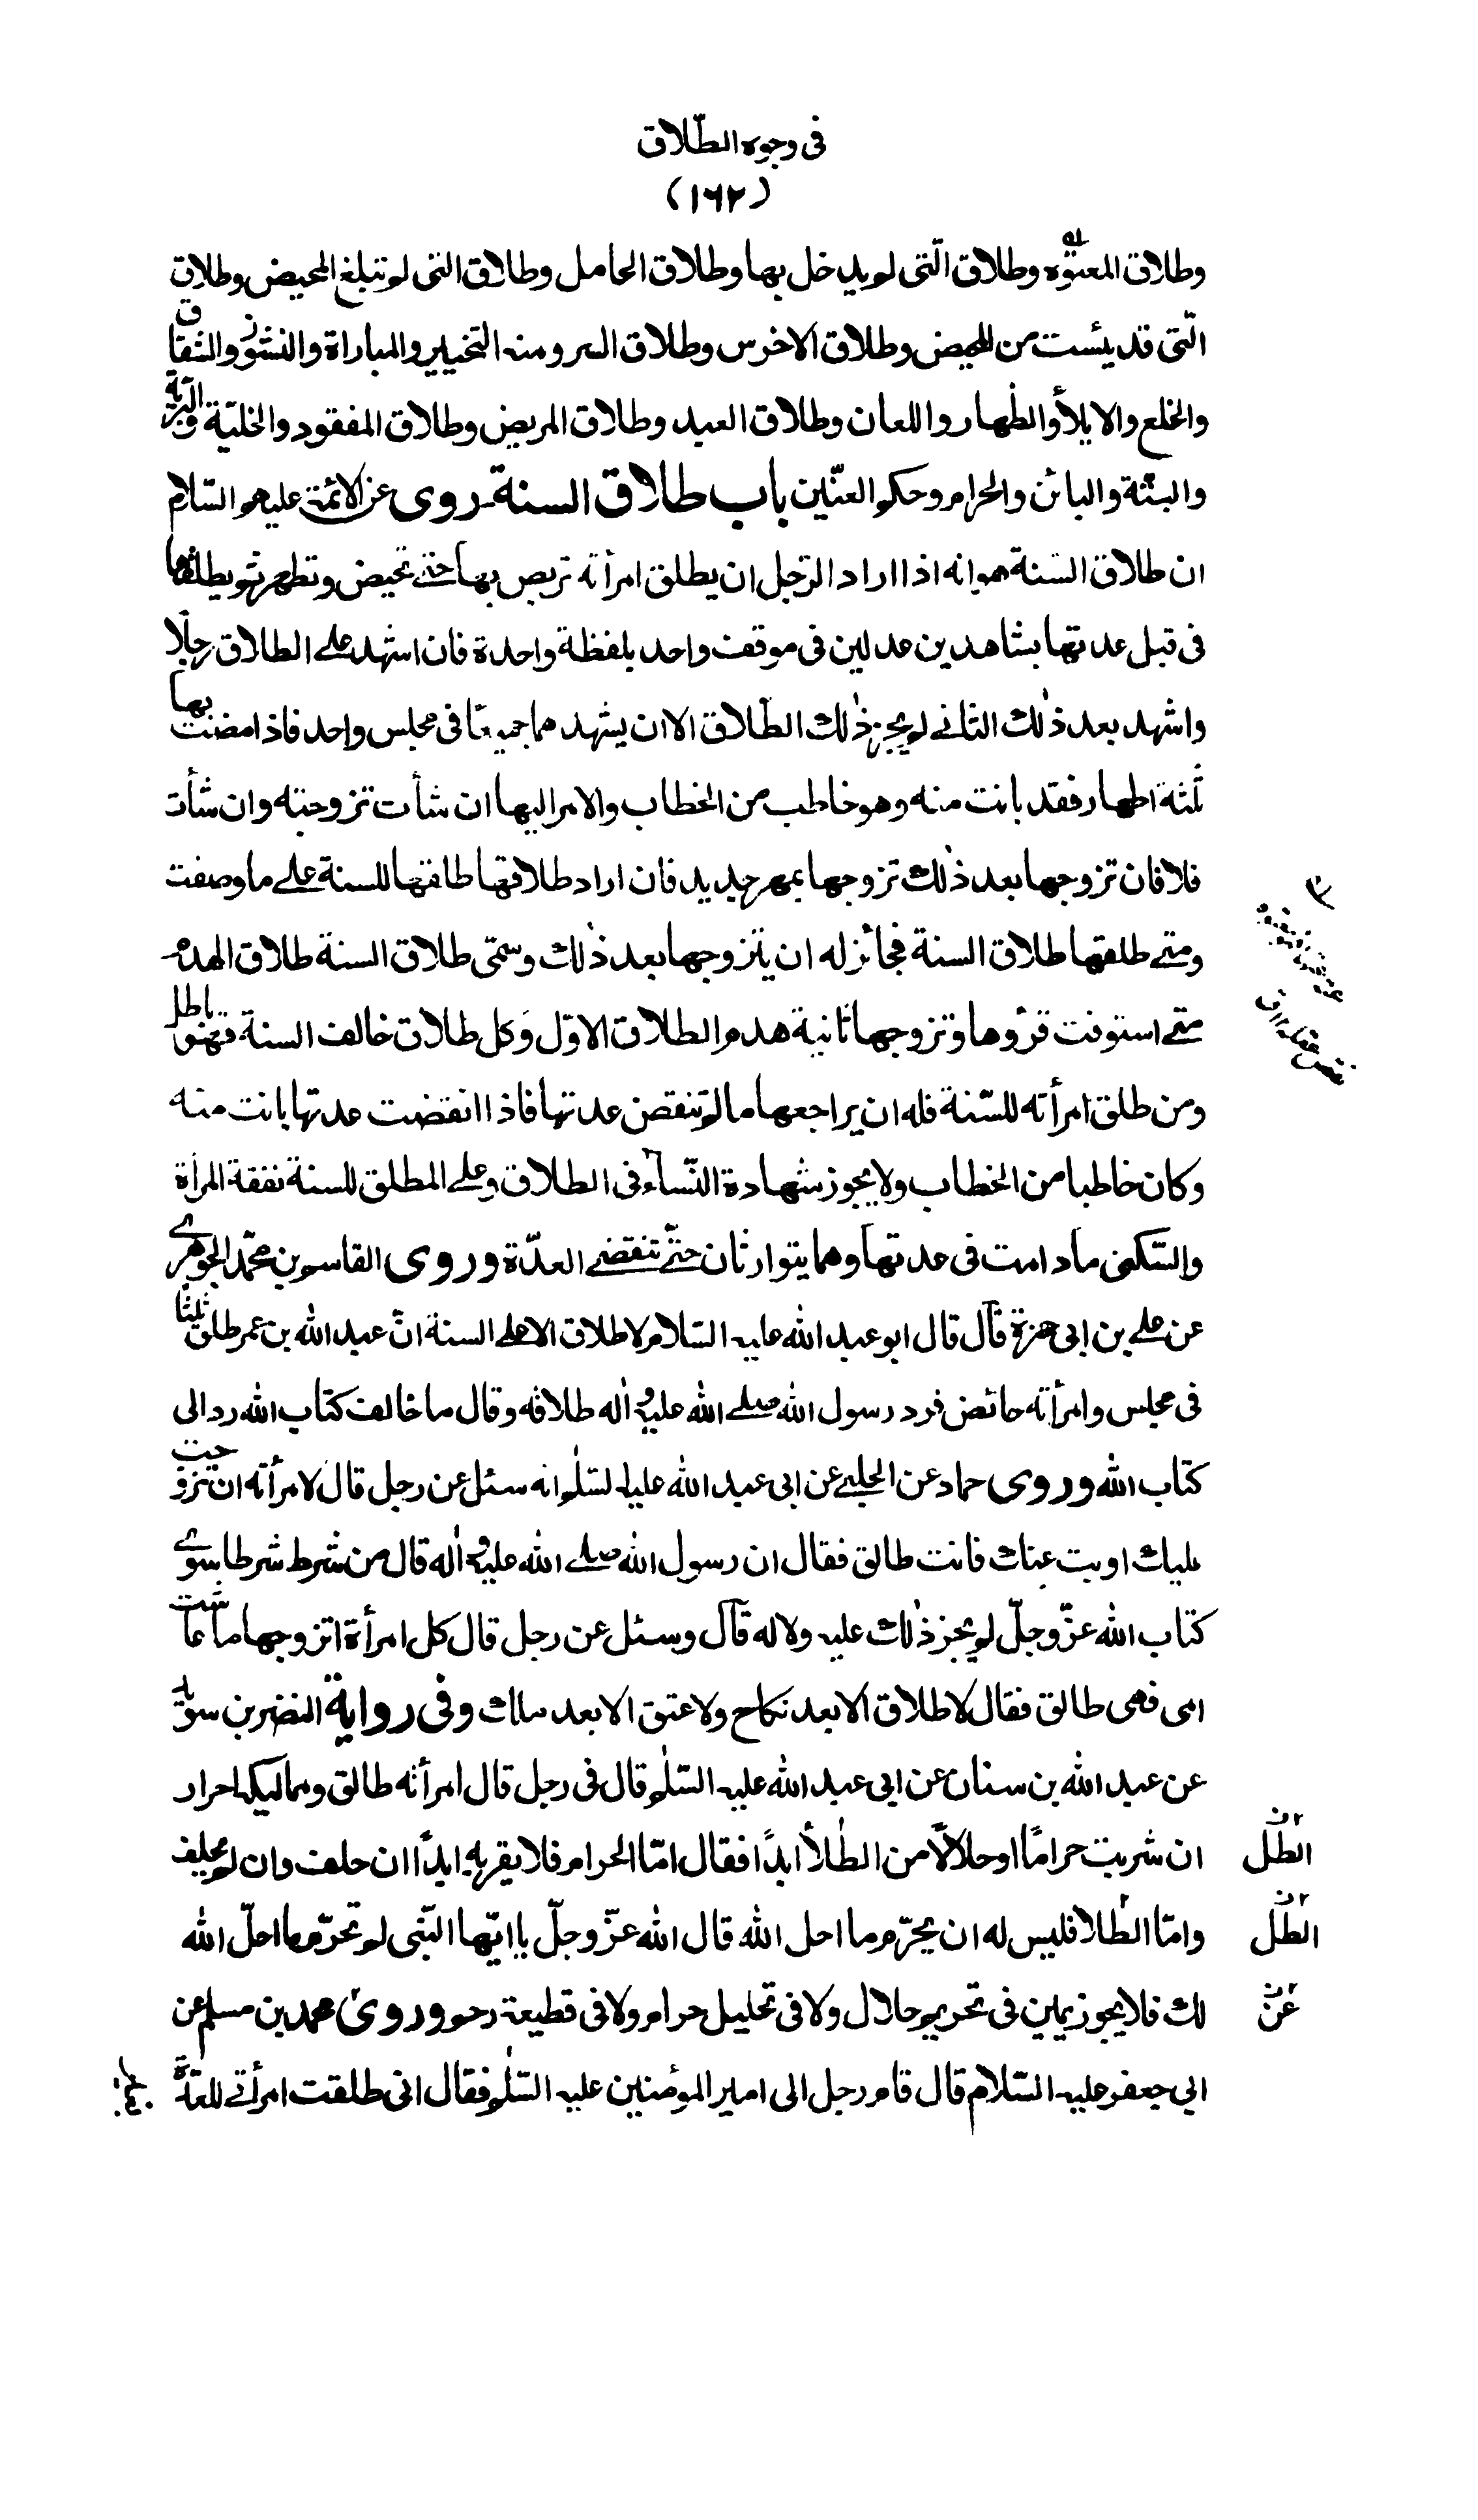 فى وجوه الطّلاق
(١٦٢)
وطلاق المعتوّه وطلاق الّتى لم يدخل بها وطلاق الحامل وطلاق التى لم تبلغ المحيض وطلاق
الّتى قد يئست من المحيض وطلاق الاخرس وطلاق السر ومنه التخيير والمباراة والنشوز والشقاق
والخلع والايلأ والظهار واللعان وطلاق العبد وطلاق المريض وطلاق المفقود والخليّة والبريّة
والبتّة والبائن والحرام وحكم العنّين باب طلاق السنة روى عن الائمّة عليهم السّلام
ان طلاق السّنة هو انه اذا اراد الرّجل ان يطلق امرأته تربص بها حتى تحيض وتطهر ثم يطلقها
فى قبل عدتها بشاهدين عدلين فى موقف واحد بلفظة واحدة فان اشهد على الطلاق رجلًا
واشهد بعد ذٰلك الثانى لم يجز ذٰلك الطّلاق الا ان يشهد هما جميعًا فى مجلس واحد فاذا مضت بها
ثلثة اطهار فقد بانت منه وهو خاطب من الخطاب والامر اليها ان شأت تزوجته وان شأت
فلا فان تزوجها بعد ذٰلك تزوجها بمهر جديد فان اراد طلاقها طلقها للسنة على ما وصفت
ومتى طلقها طلاق السنة فجائز له ان يتزوجها بعد ذٰلك وسمّى طلاق السنة طلاق الهدم
متى استوفت قرؤها وتزوجها ثانية هدم الطلاق الاوّل وكل طلاق خالف السنة فهو باطل
ومن طلق امرأته للسّنة فله ان يراجعها ما لم تنقض عدتها فاذا انقضت عدتها بانت منه
وكان خاطبا من الخطاب ولا يجوز شهادة النّسآء فى الطلاق وعلى المطلق للسنة نفقة المرأة
والسّكنى ما دامت فى عدتها وهما يتوارثان حتّى تنقضى العدّة وروى القاسم بن محمّد الجوهرى
عن على بن ابى حمزة قال قال ابو عبد الله عليه السّلام لا طلاق الا على السنة انّ عبد الله بن عمر طلق ثلثا
فى مجلس وامرأته حائض فرد رسول الله صلى الله عليه واٰله طلاقه وقال ما خالف كتاب الله رد الى
كتاب الله وروى حماد عن الحلبى عن ابى عبد الله عليه السّلٰم انه سئل عن رجل قال لامرأته ان تزوجت
عليك او بت عنك فانت طالق فقال ان رسول الله صلى الله عليه واٰله قال من شرط شرطا سوى
كتاب الله عزّ وجلّ لم يجز ذٰلك عليه ولا له قال وسئل عن رجل قال كل امرأة اتزوجها ما عاشت
امى فهى طالق فقال لا طلاق الا بعد نكاح ولا عتق الا بعد ملك وفى رواية النضر بن سويد
عن عبد الله بن سنان عن ابى عبد الله عليه السّلٰم قال فى رجل قال امرأته طالق ومماليكه احرار
ان شربت حرامًا او حلالًا من الطّلأ ابدًا فقال امّا الحرام فلا يقربه ابدًا ان حلف وان لم يحلف
الطّل
وامّا الطّلا فليس له ان يحرّم ما احل الله قال الله عزّ وجلّ يا ايّها النّبى لم تحرّم ما احلّ الله
الطّل
لك فلا يجوز يمين فى تحريم حلال ولا فى تحليل حرام ولا فى قطيعة رحم وروى محمد بن مسلم عن
عن
ابى جعفر عليه السّلام قال قام رجل الى امير المؤمنين عليه السّلٰم فقال انى طلقت امرأتى للعدّة